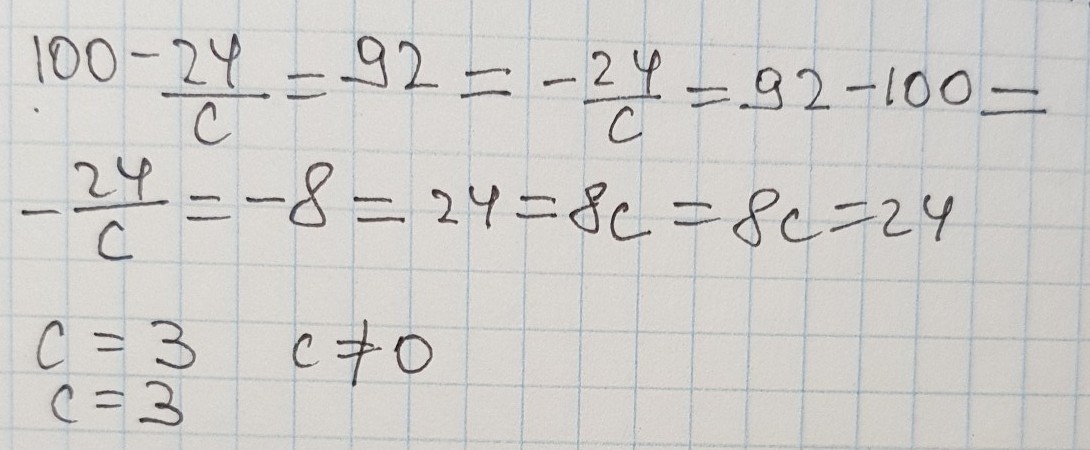 100 - 24/c = 92 = - 24/c = 92 - 100 =
- 24/c = -8 = 24 = 8c = 8c = 24
c = 3 c ≠ 0
c = 3